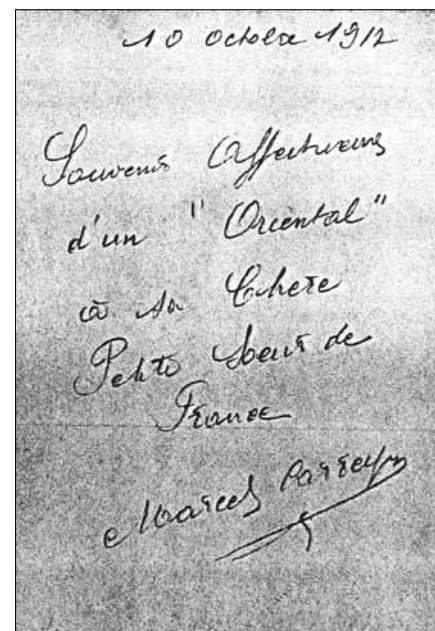 10 octobre 1912
Souvenirs Affectueux
d'un "Oriental"
à sa Chère
Petite Soeur de
France
Marcel